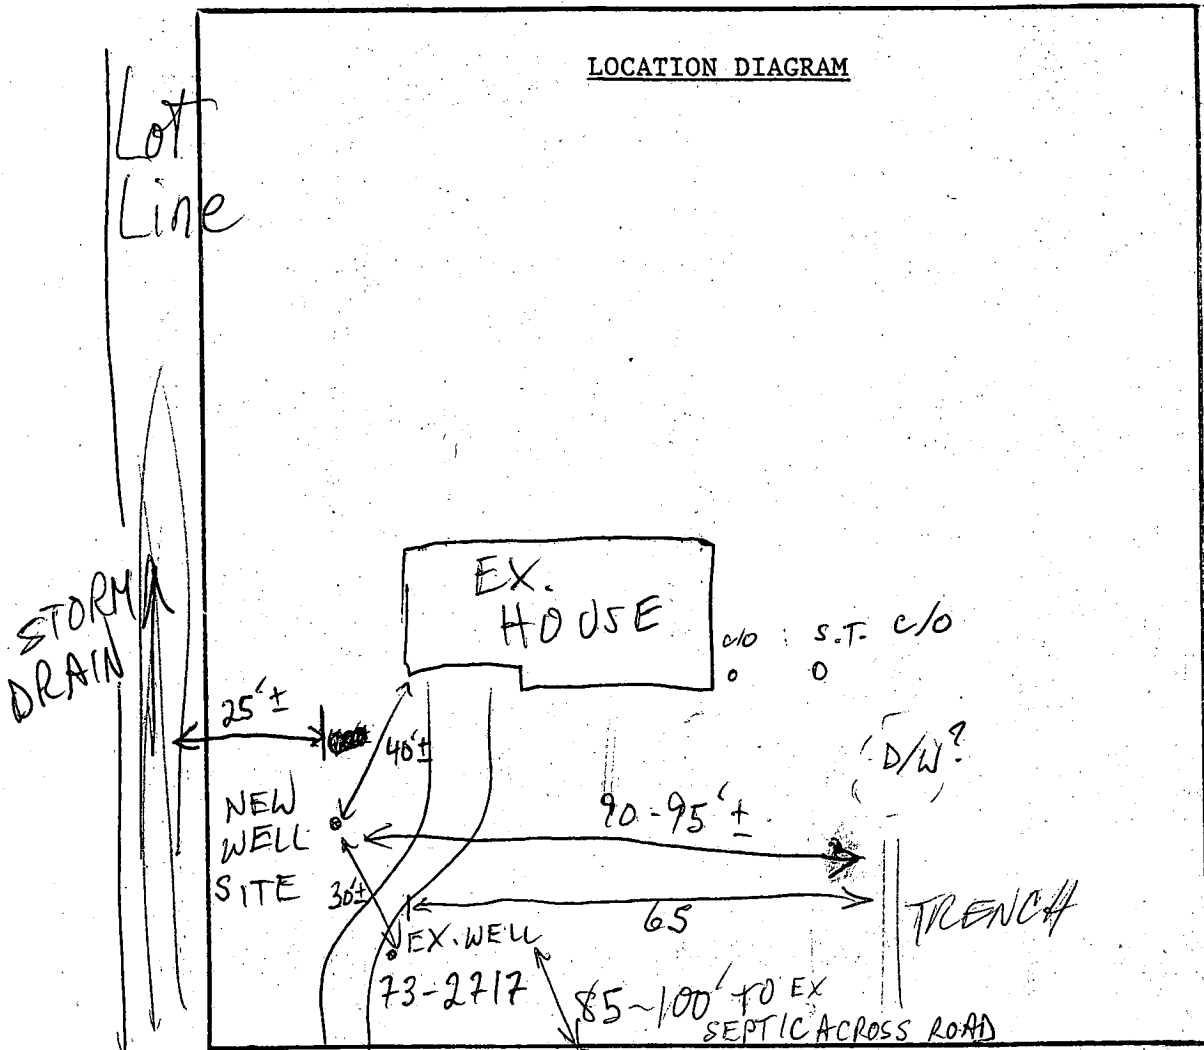 LOCATION DIAGRAM
Lot
Line
EX.
HOUSE
c/o
S.T. c/o
STORM
DRAIN
25'±
40'±
D/W?
NEW
WELL
SITE
90-95'±
30'±
65
TRENCH
EX. WELL
73-2717
85~100' TO EX
SEPTIC ACROSS ROAD